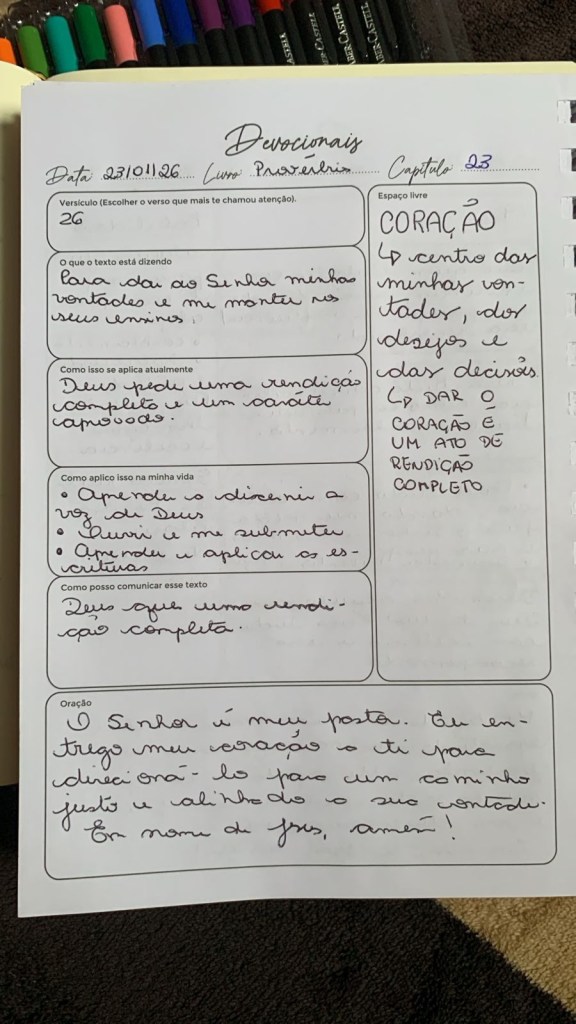 FABER-CASTELL
FABER-CASTELL
Devocionais
Data: 23/01/26 Livro Provérbios Capítulo 23
Versículo (Escolher o verso que mais te chamou atenção).
26
O que o texto está dizendo
Para dar ao Senhor minhas
vontades e me manter nos
seus ensinos.
Como isso se aplica atualmente
Deus pede uma rendição
completa e um caráter
aprovado.
Como aplico isso na minha vida
• Aprender a discernir a
voz de Deus
• Ouvir e me submeter
• Aprender e aplicar as es-
crituras
Como posso comunicar esse texto
Deus quer uma rendi-
ção completa.
Espaço livre
CORAÇÃO
↳ centro das
minhas von-
tades, dos
desejos e
das decisões
↳ DAR O
CORAÇÃO É
UM ATO DE
RENDIÇÃO
COMPLETO
Oração
O Senhor é meu pastor. Eu en-
trego meu coração a ti para
direcioná-lo para um caminho
justo e alinhado a sua vontade.
Em nome de Jesus, amém!